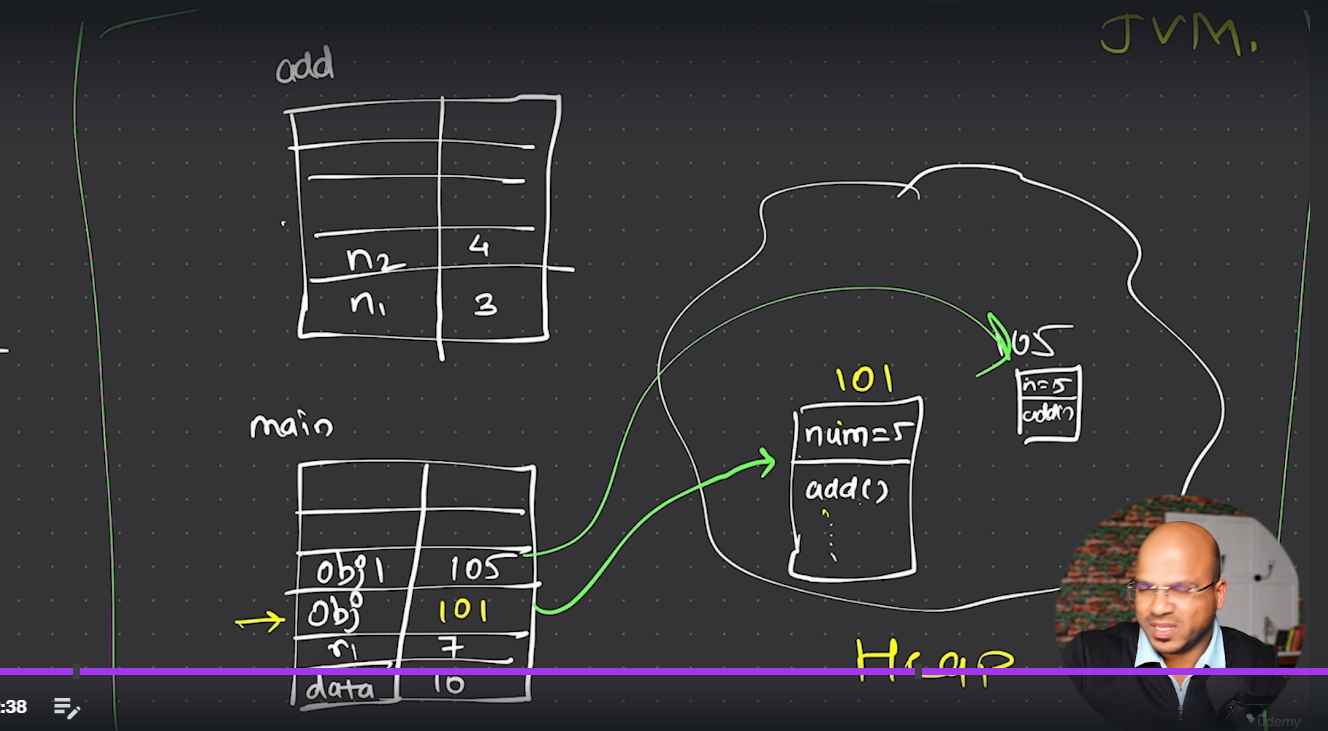 JVM.
add
n2 4
n1 3
main
obj1 105
obj 101
r1 7
data 10
101
num=5
add()
105
n=5
add()
Heap
:38
ûdemy